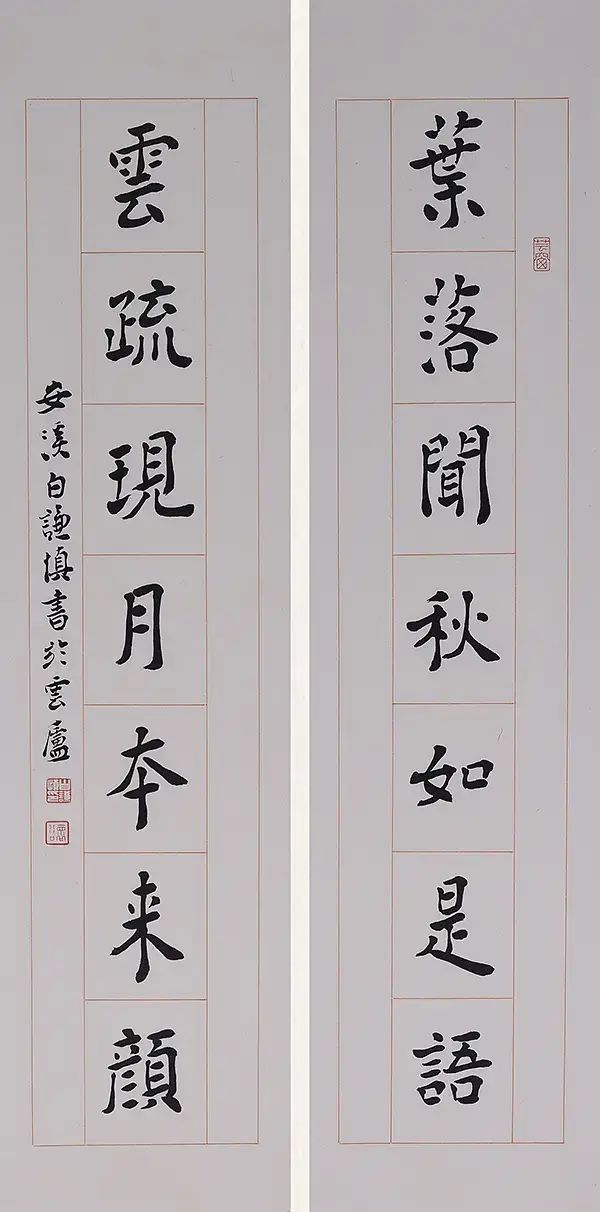 葉落聞秋如是語
雲疏現月本来顔
安溪白謙慎書於雲廬
芸窗